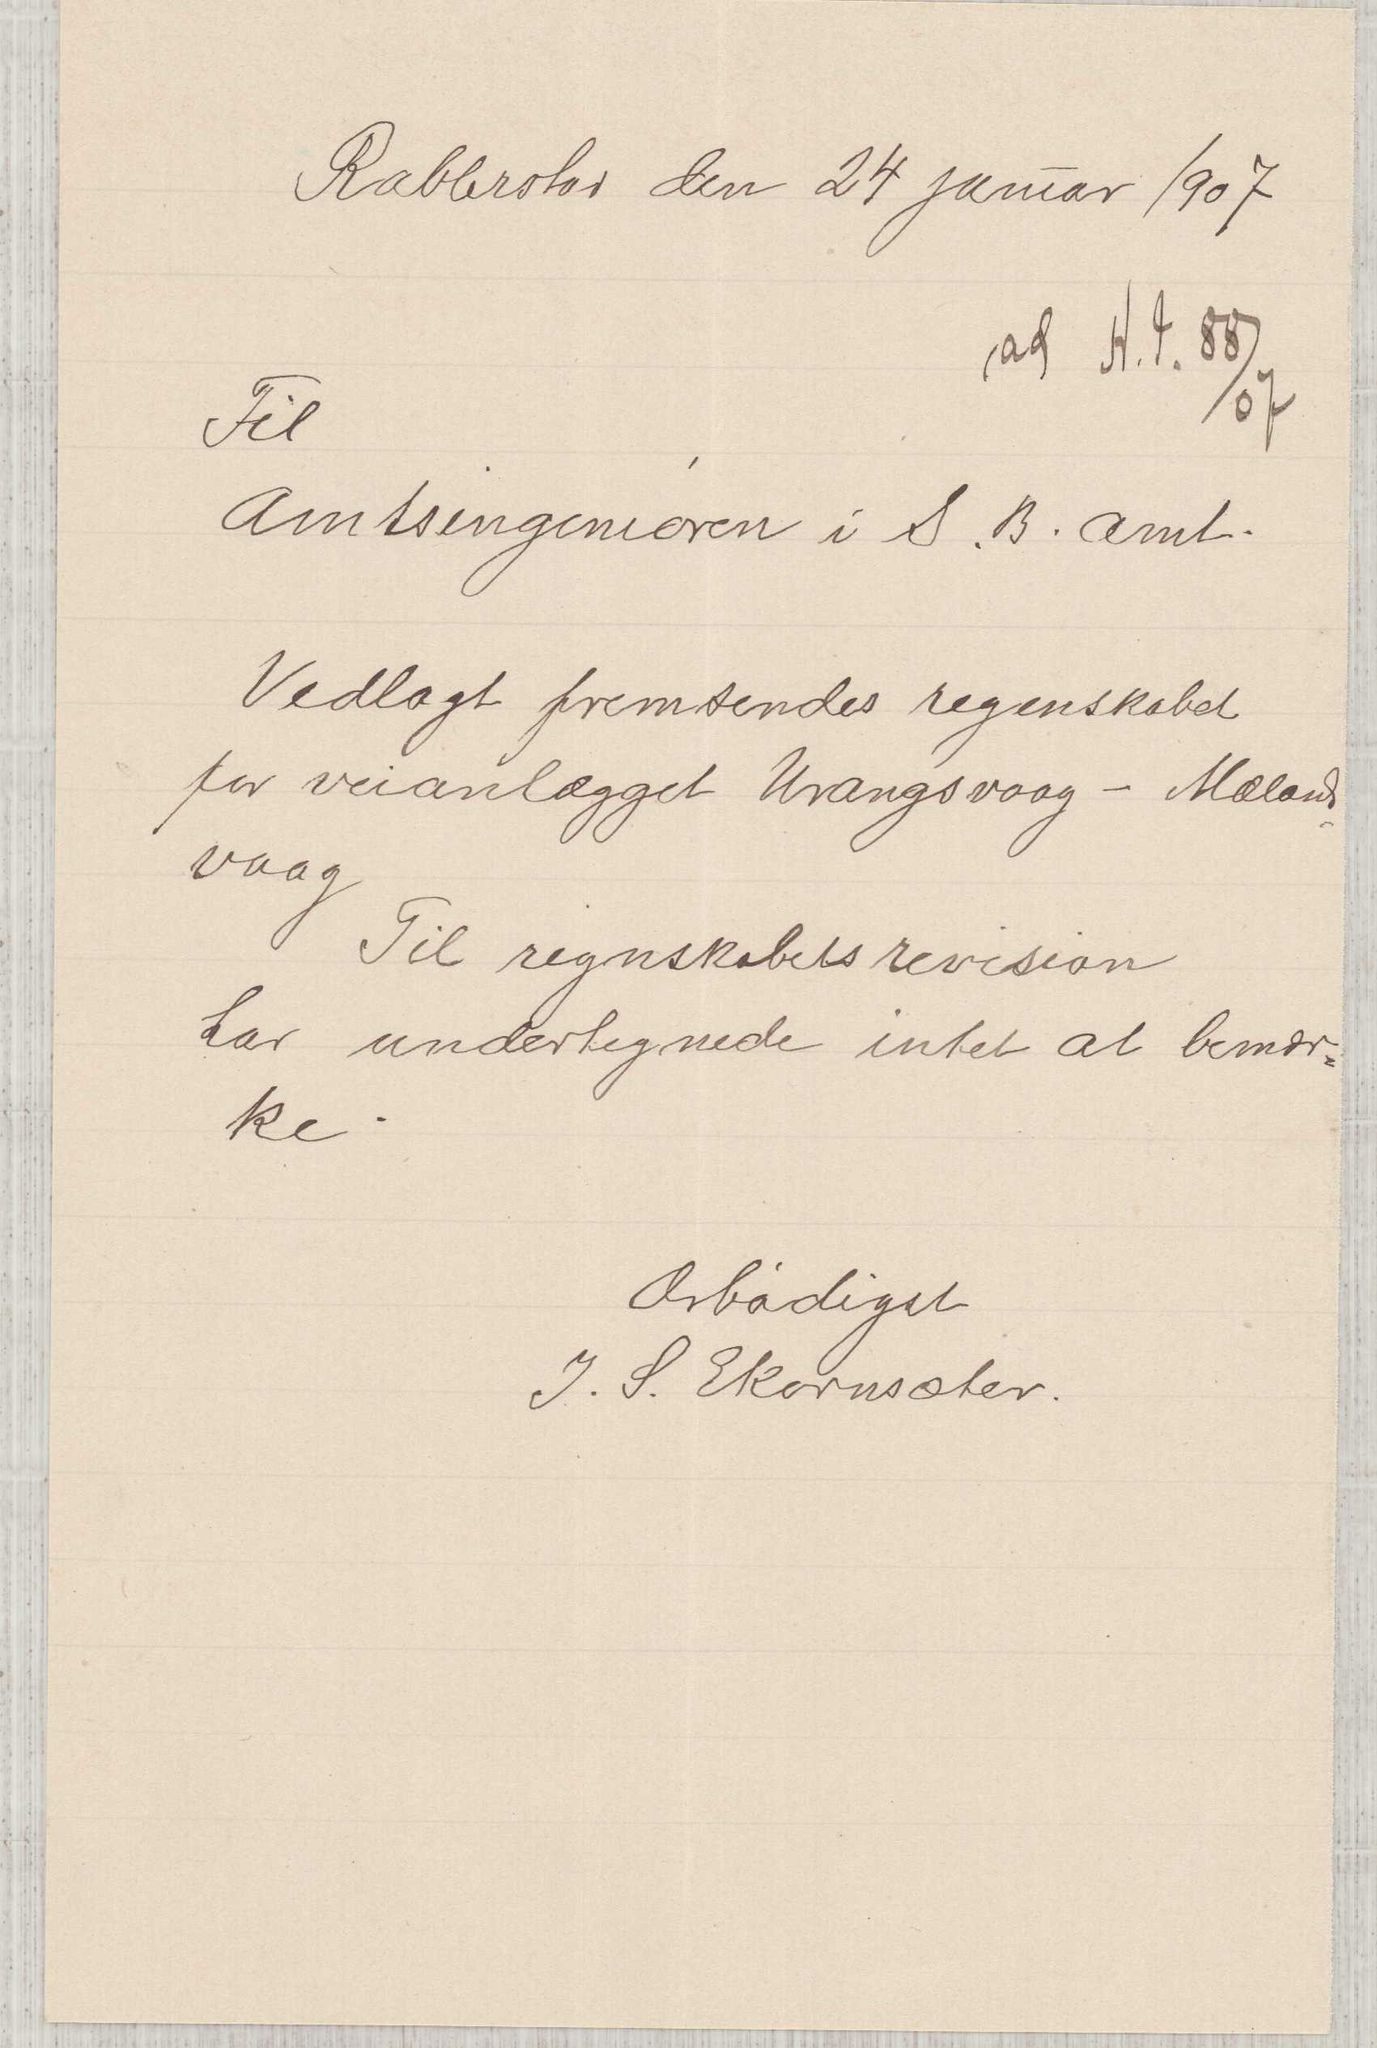 Rabberstad den 24 januar 1907
ad H.J. 88/07
Til
Amtsingeniøren i S. B. amt.
Vedlagt fremsendes regenskabet
for veianlægget Urangsvaag - Mælands-
vaag
Til regnskabets revision
har undertegnede intet at bemær=
ke.
Ærbødigst
J. S. Ekornsæter.